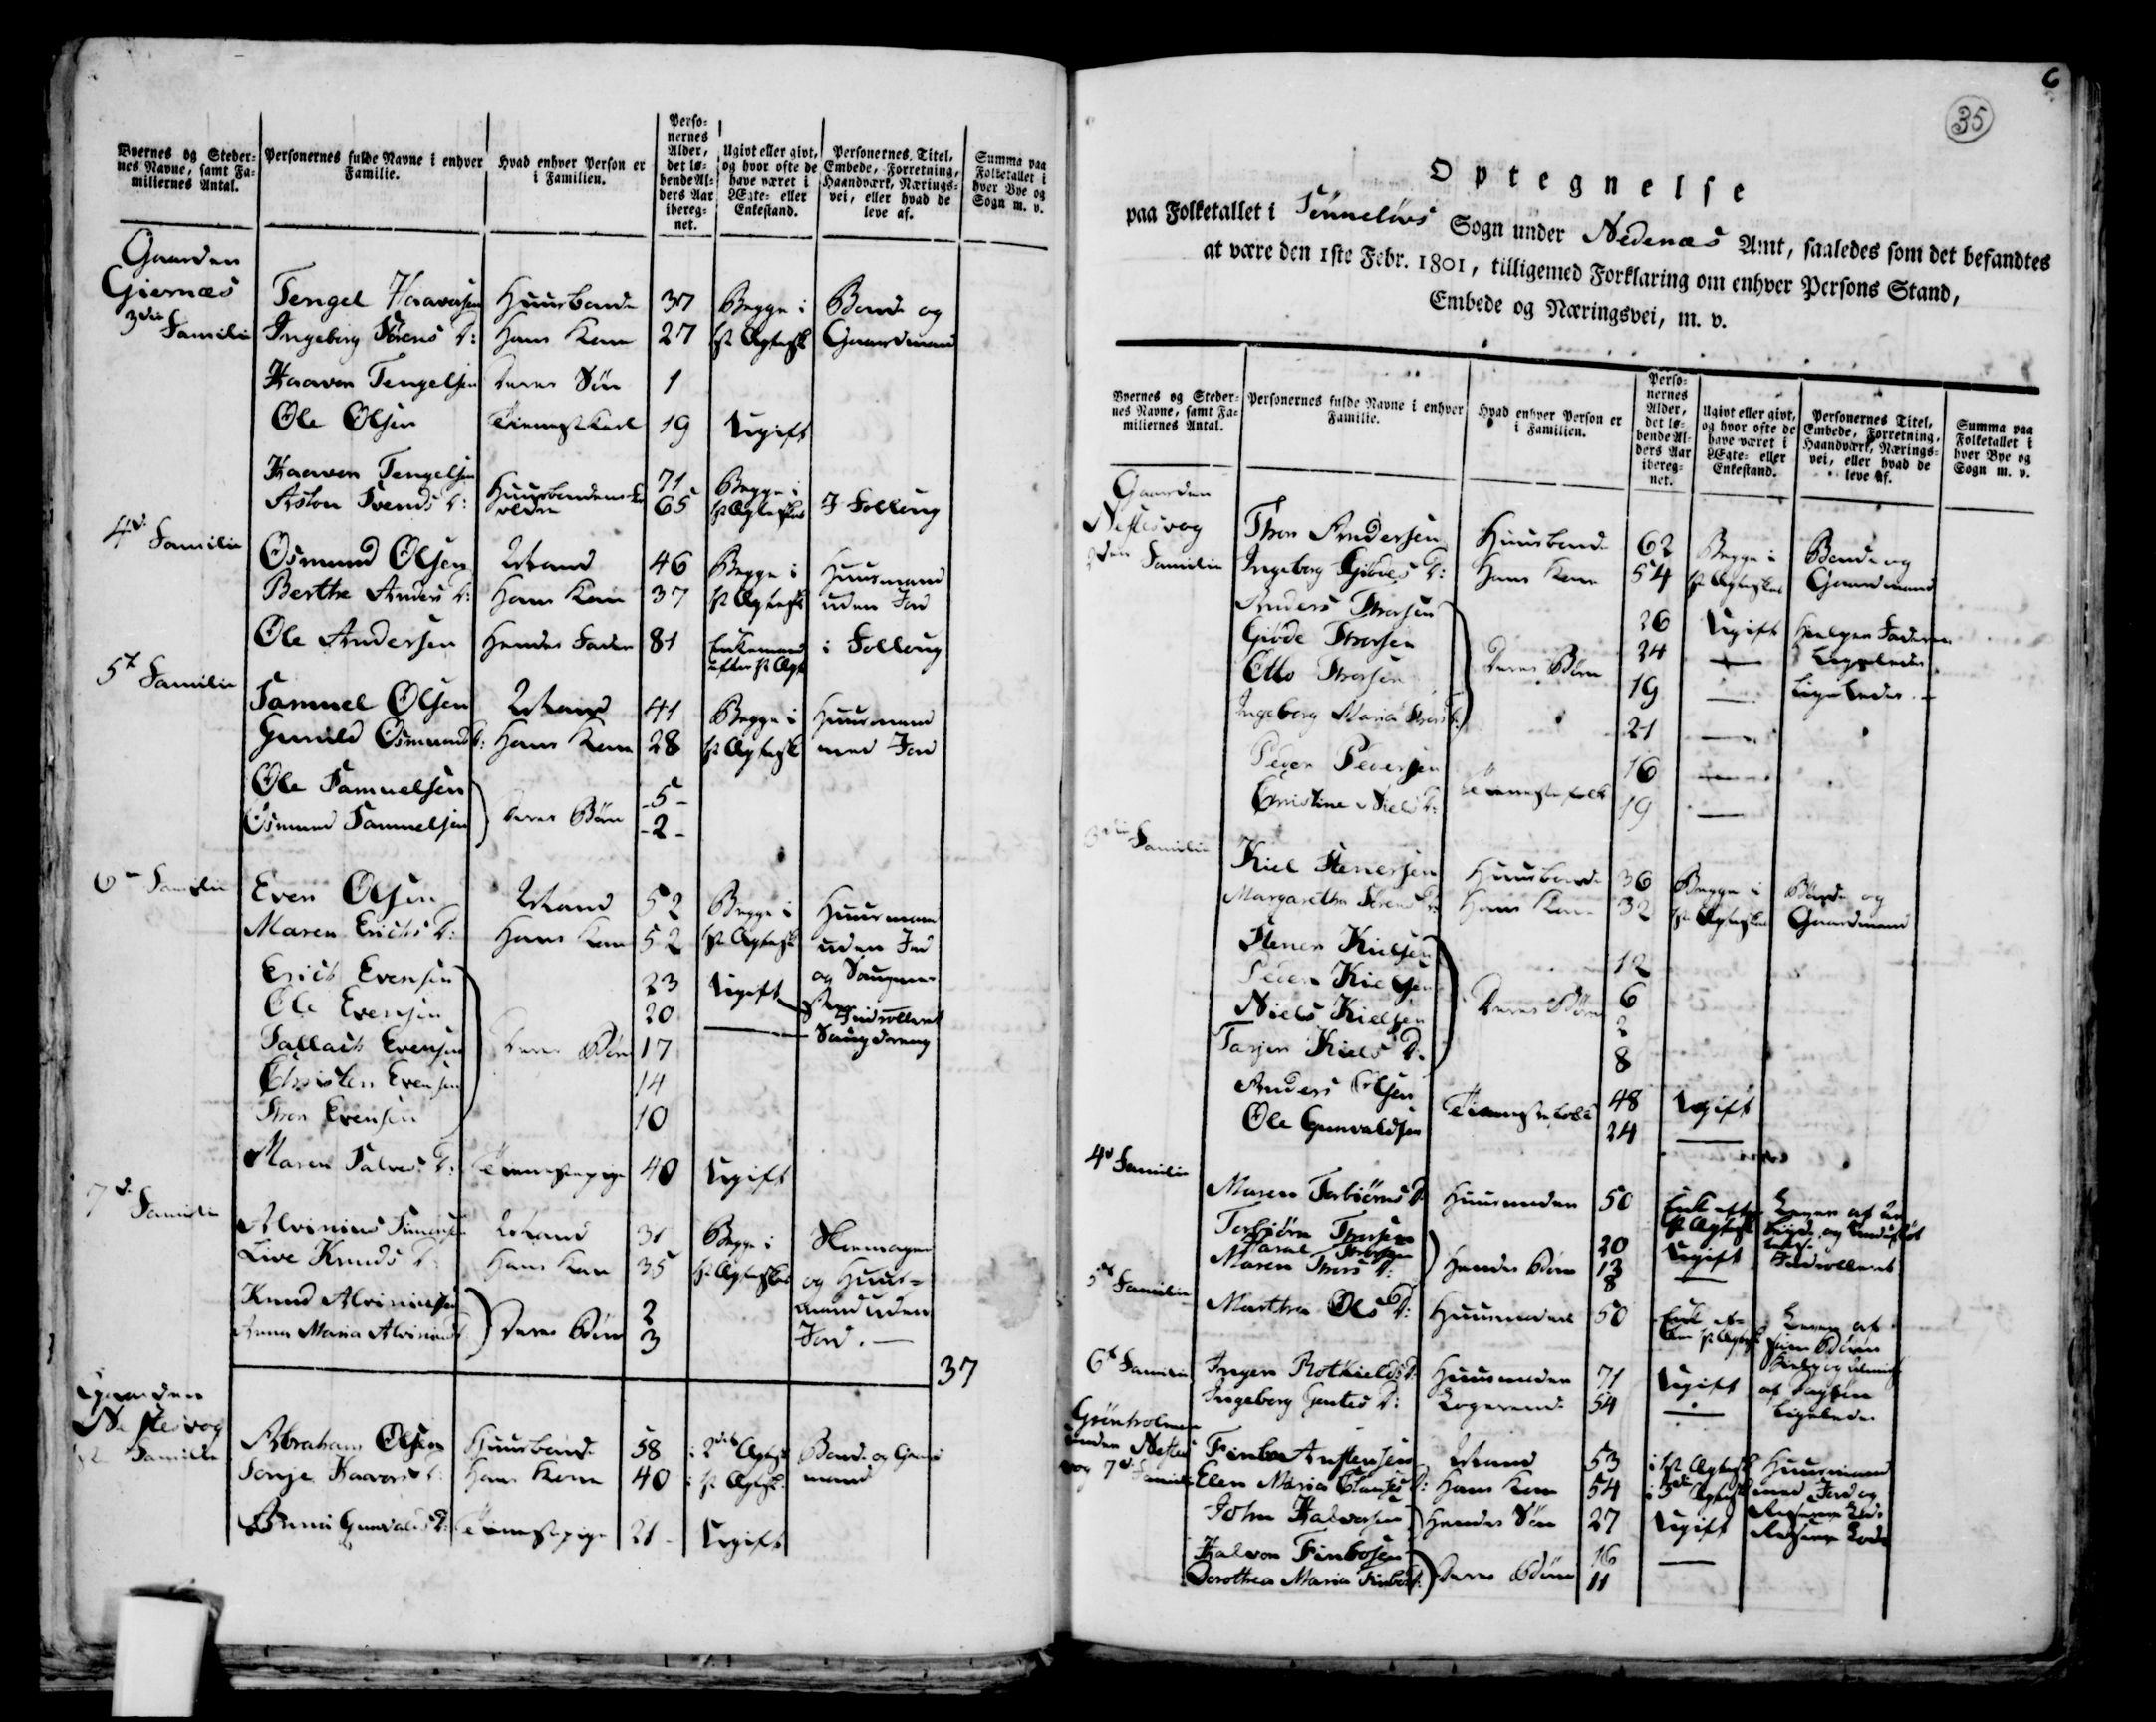 Byernes og Steder-
nes Navne, samt Fa-
miliernes Antal.
Personernes fulde Navne i enhver
Familie.
Hvad enhver Person er
i Familien.
Perso-
nernes
Alder,
det lø-
bende Al-
ders Aar
ibereg-
net.
Ugivt eller givt,
og hvor ofte de
have været i
Ægte- eller
Enkestand.
Personernes Titel,
Embede, Forretning,
Haandværk, Nærings-
vei, eller hvad de
leve af.
Summa paa
Folketallet i
hver Bye og
Sogn m. v.
Gaarden
Giernæs
3die Familie
Tengel Haavorsen Huusbonde 37 Begge i Bonde og
Ingeborg Sørens D: Hans Kone 27 1st Ægtesk Gaardmand
Haavor Tengelsen Deres Søn 1
Ole Olsen Tienestkarl 19 Ugift
Haavor Tengelsen 71 Begge i
Aslou Svends D: 65 I Folloug
4d Familie
Osmund Olsen Mand 46 Begge i Huusmand
Berthe Anders D: Hans Kone 37 1st Ægtesk uden Jord
Ole Andersen Hendes Fader 81 Enkemand i Folloug
efter 1st Ægt
5t Familie
Samuel Olsen Mand 41 Begge i Huusmand
Gunild Osmunds D: Hans Kone 28 1st Ægtesk med Jord
Ole Samuelsen -5-
Osmund Samuelsen Deres Børn -2-
6 Familie
Even Olsen Mand 52 Begge i Huusmand
Maren Erichs D: Hans Kone 52 1st Ægtesk uden Jord
Erich Evensen 23 Ugift
Ole Evensen 20
Tallach Evensen Deres Børn 17
Christen Evensen 14
Thor Evensen 10
Maren Salves D: Tienestepige 40 Ugift
7d Familie
Alvinius Simonsen Mand 31 Begge i Skomager
Live Knuds D: Hans Kone 35 og Huus-
Knud Alviniussen 2 mand uden
Anna Maria Alvinius Deres Børn 3 Jord. —
37
Gaarden
Neskesvog
Familie
Abraham Olsen Huusbonde 58 i 2det Ægtesk Bonde og Gaard
Tonje Haavors D: Hans Kone 40 i 1st Ægtesk mand
Gunvalds D: Tienestepige 21 - Ugift
6
35
Optegnelse
paa Folketallet i Tønneløvs Sogn under Nedenæs Amt, saaledes som det befandtes
at være den 1ste Febr. 1801, tilligemed Forklaring om enhver Persons Stand,
Embede og Næringsvei, m. v.
Byernes og Steder-
nes Navne, samt Fa-
miliernes Antal.
Personernes fulde Navne i enhver
Familie.
Hvad enhver Person er
i Familien.
Perso-
nernes
Alder,
det lø-
bende Al-
ders Aar
ibereg-
net.
Ugivt eller givt,
og hvor ofte de
have været i
Ægte- eller
Enkestand.
Personernes Titel,
Embede, Forretning,
Haandværk, Nærings-
vei, eller hvad de
leve af.
Summa paa
Folketallet i
hver Bye og
Sogn m. v.
Gaarden
Neskesvog
Familie
Thor Andersen Huusbonde 62 Begge i Bonde og
Ingeborg Giødes D: Hans Kone 54 Gaardmand
Anders Thorsen 26 Ugift Hielper Faderen
Giøde Thorsen 24 — Ligeledes
Otto Thorsen Deres Børn 19 — Ligeledes. —
Ingeborg Maria Thors D: 21 —
Peder Pedersen 16 —
Christine Niels D: Tienestefolk 19 —
Familie
Kiel Stenersen Huusbonde 36 Begge i Bonde og
Margarethe D: Hans Kone 32 Gaardmand
Stener Kielsen 12
Peder Kielsen 6
Niels Kielsen Deres Børn 2
Tarjer Kiels D: 8
Anders Olsen 48 Ugift
Ole Gunvaldsen Tienestefolk 24 —
4d Familie
Maren Torbiørns D Huusmoder 50
Torbiørn Thorsen 20 Ugift
Thorsen 13 —
Maren Thors D: Hendes Børn 8
5t Familie
Marthe Ols D: Huusmoder 50 Lever af
sine Børn
6t Familie
Inger Rotkields D: Huusmoder 71 Ugift
Ingeborg D: Logerende 54 — Ligeledes
Grønholmen
under Neskes
vog 7d Familie
Finbo Austensen Mand 53 i 1st Ægtesk Huusmand
Elen Maria D: Hans Kone 54 med Jord og
John Halvorsen Hendes Søn 27 Ugift
Halvor Finbosen 16 —
Dorothea Maria Finbos D: Deres Børn 11